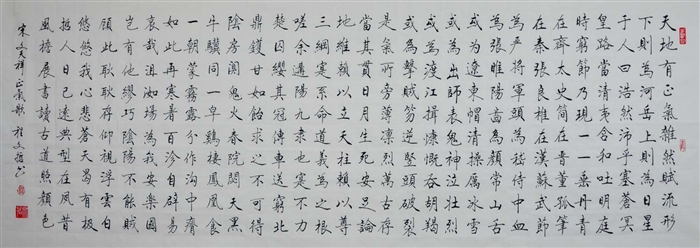 天地有正氣雜然賦流形
下則為河岳上則為日星
于人曰浩然沛乎塞蒼冥
皇路當清夷含和吐明庭
時窮節乃現一一垂丹青
在齊太史簡在晉董狐筆
在秦張良椎在漢蘇武節
為嚴將軍頭為嵇侍中血
為張睢陽齒為顏常山舌
或為遼東帽清操厲冰雪
或為出師表鬼神泣壯烈
或為渡江楫慷慨吞胡羯
或為擊賊笏逆豎頭破裂
是氣所旁薄凜烈萬古存
當其貫日月生死安足論
地維賴以立天柱賴以尊
三綱實系命道義為之根
嗟余遘陽九隸也實不力
楚囚纓其冠傳車送窮北
鼎鑊甘如飴求之不可得
陰房闃鬼火春院閟天黑
牛驥同一皁雞棲鳳凰食
一朝蒙霧露分作溝中瘠
如此再寒暑百沴自辟易
哀哉沮洳場為我安樂國
豈有他繆巧陰陽不能賊
顧此耿耿在仰視浮雲白
悠悠我心悲蒼天曷有極
哲人日已遠典型在夙昔
風檐展書讀古道照顏色
宋文天祥正氣歌 程文